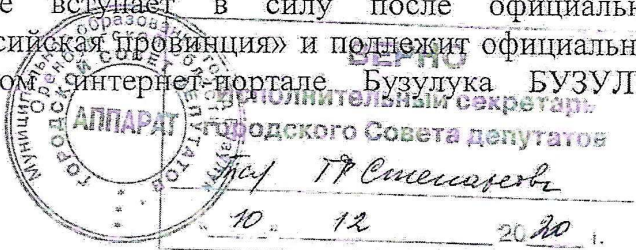 е вступает в силу после официальн
сийская провинция» и подлежит официальн
ом интернет-портале Бузулука БУЗУЛ
ВЕРНО
Исполнительный секретарь
городского Совета депутатов
10 12 2020 г.
Муниципальное образование
ГОРОДСКОЙ СОВЕТ ДЕПУТАТОВ
АППАРАТ